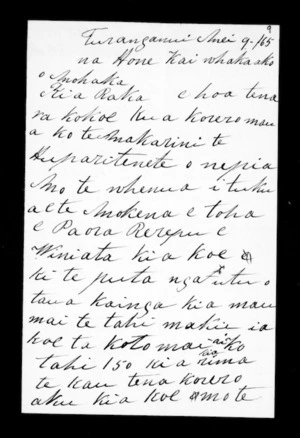 9
Turanganui Mei 9. /65
na Hone Kai whakaako
o Mohaka
Kia Raka e hoa tena
na kokoe Kua korero mau
a ko te Makarini te
Huparitenete o nepia
Mo te whenua i tuku
ai te Mokena e toha
e Paora Rerepu e
Winiata kia koe
ki te puta nga utu o
taua Kainga kia mau
mai te tahi makiu ia
koe ta koto mai ko
tahi 150 kia rima
te kau tena korero
aku kia koe mo te